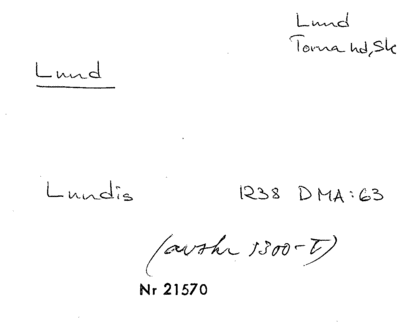 Lund
Torna hd, Sk
Lund
Lundis 1238 DMA:63
(avskr 1300-T)
Nr 21570